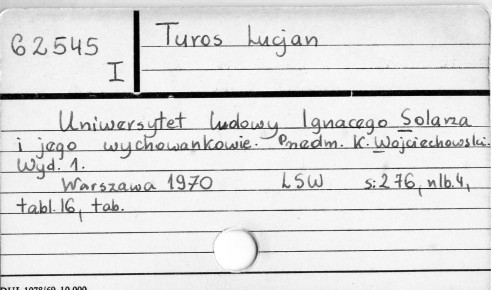 62545
I
Turos Lucjan
Uniwersytet Ludowy Ignacego Solarza
i jego wychowankowie. Przedm. K. Wojciechowski.
Wyd. 1.
Warszawa 1970 LSW s: 276, nlb. 4,
tabl. 16, tab.